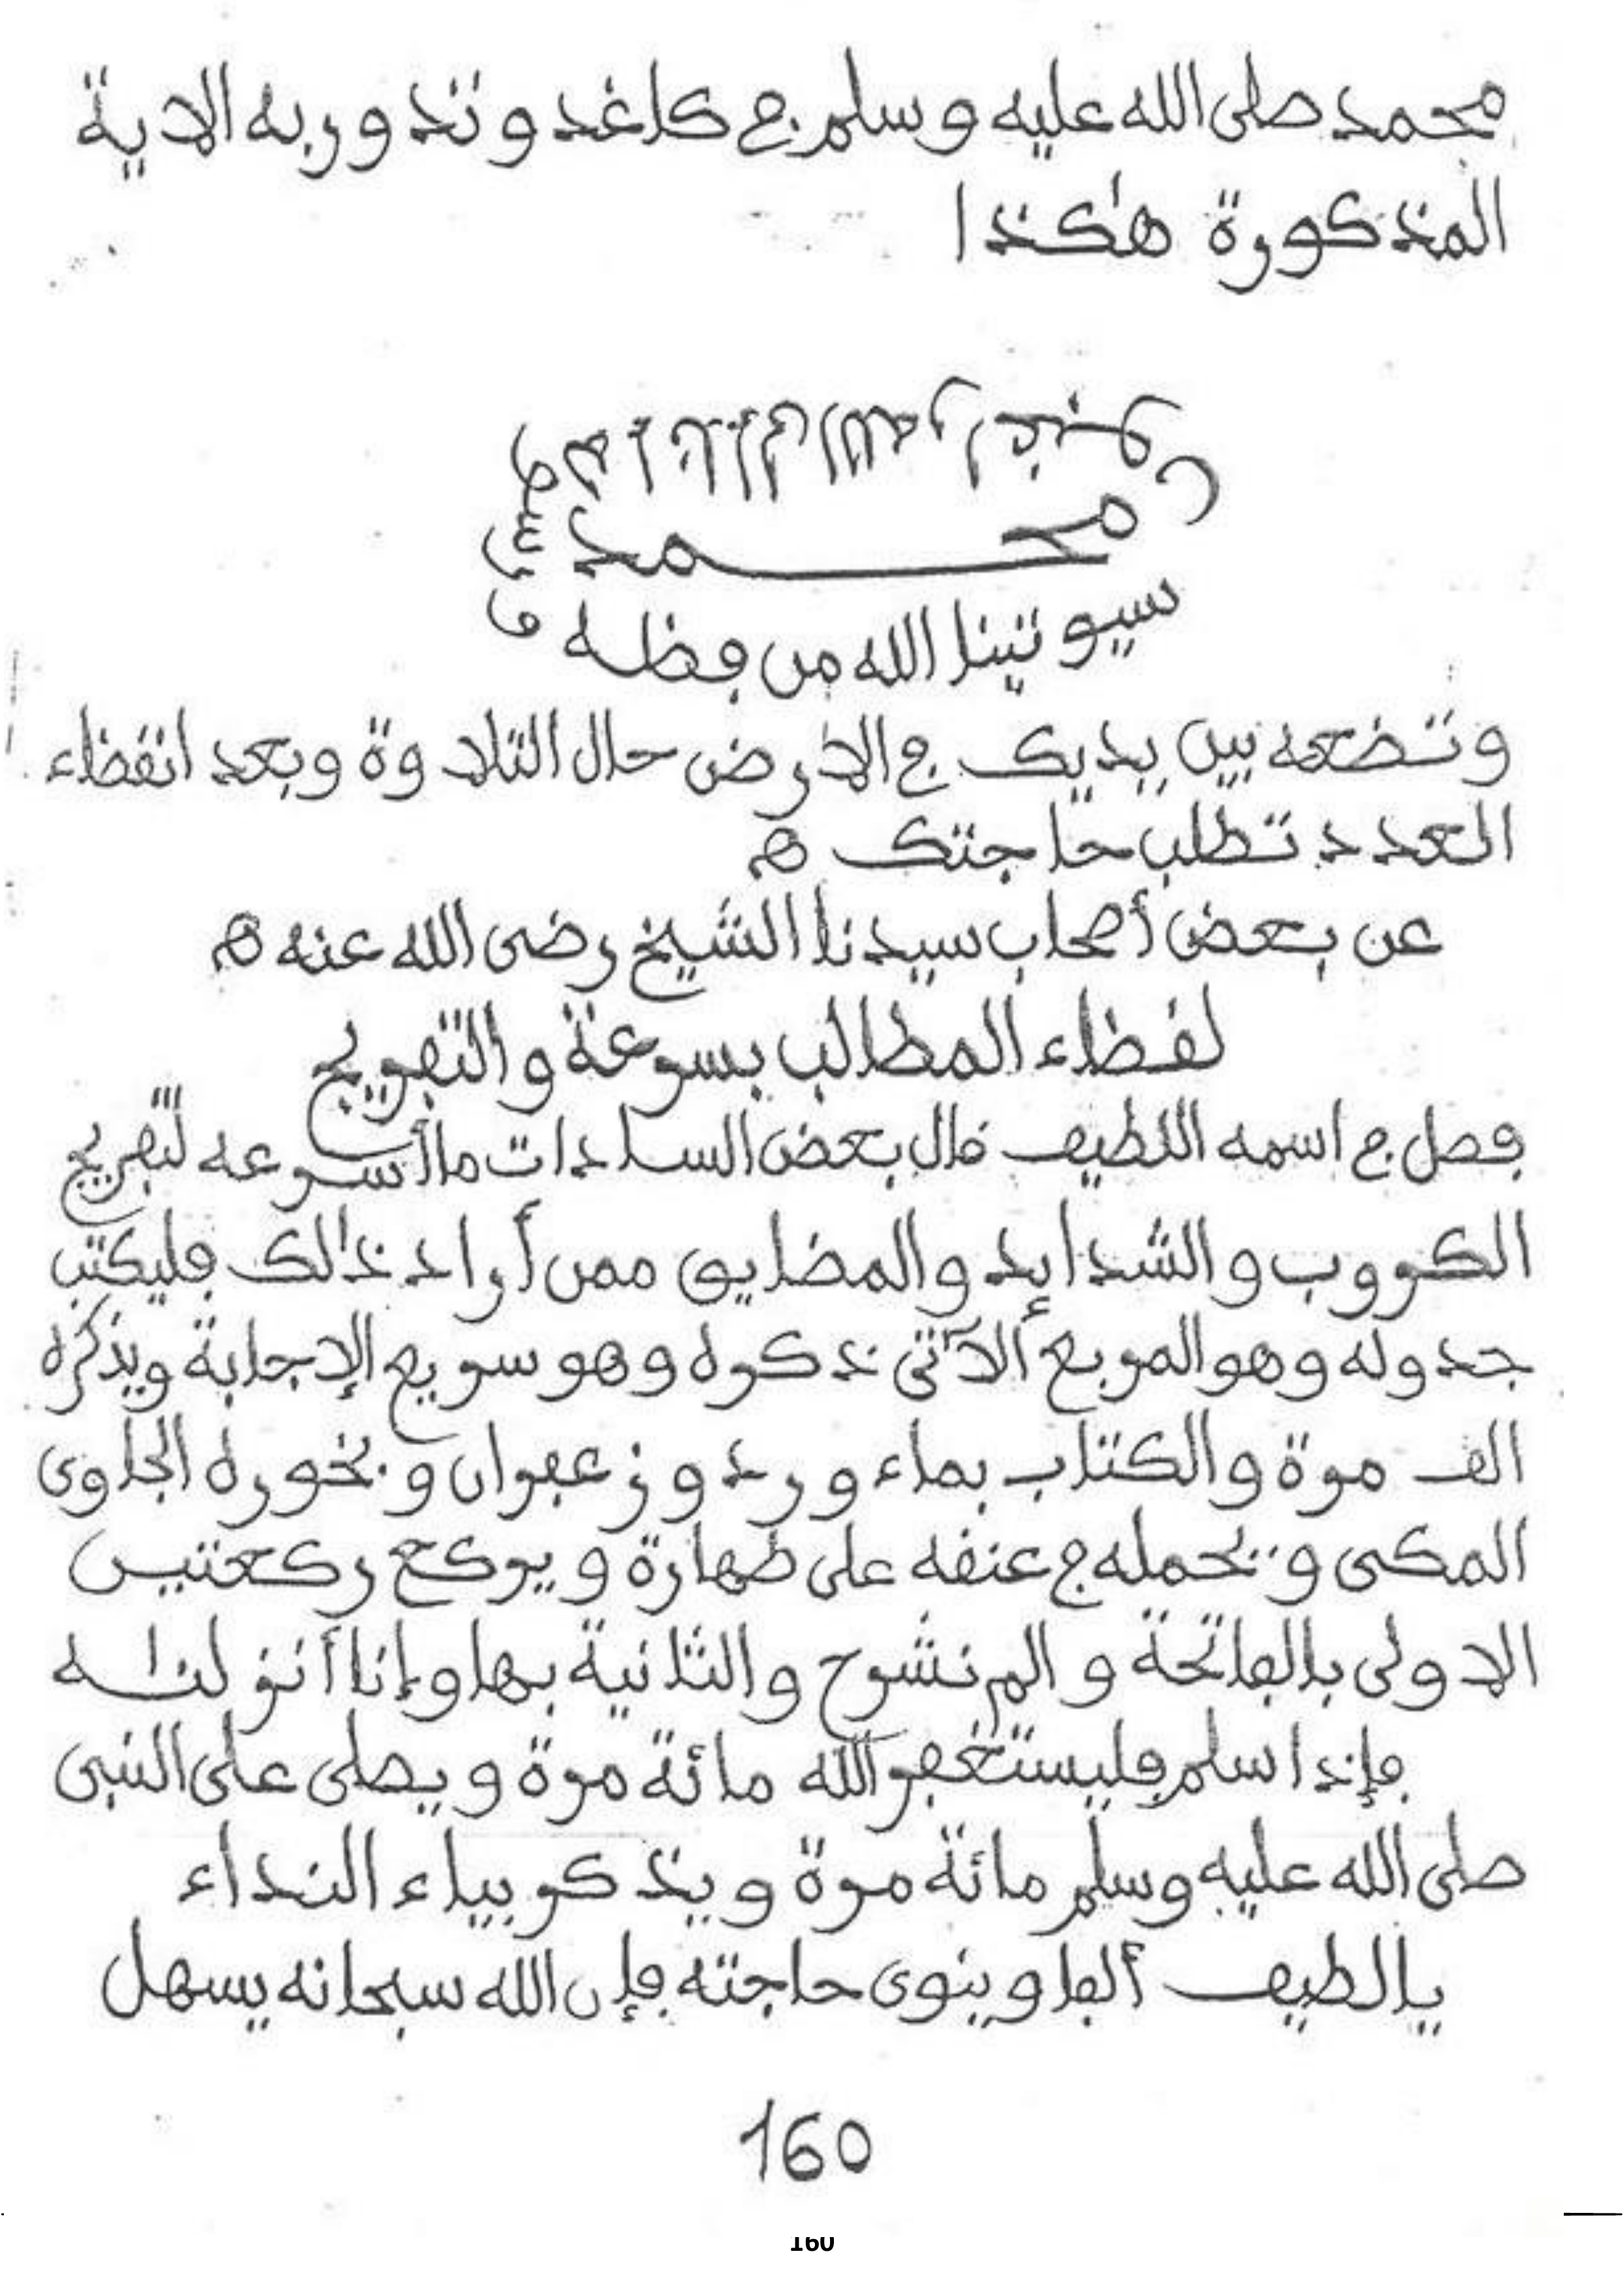 محمد صلى الله عليه وسلم في كاغد وتدور به الاية
المذكورة هكذا
محمد
سيوتينا الله من فضله و
وتضعه بين يديك في الارض حال التلاوة وبعد انقضاء
العدد تطلب حاجتك ه
عن بعض أصحاب سيدنا الشيخ رضى الله عنه ه
لقضاء المطالب بسرعة والتفريج
فصل في اسمه اللطيف قال بعض السادات ما أسرعه لتفريج
الكروب والشدايد والمضايق ممن أراد ذالك فليكتب
جدوله وهو المربع الآتى ذكره وهو سريع الإجابة ويذكره
الف مرة والكتاب بماء ورد وزعفران وبخوره الجاوى
المكى ويحمله في عنقه على طهارة ويركع ركعتين
الاولى بالفاتحة والم نشرح والثانية بها وإنا أنزلناه
فإذا سلم فليستغفر الله مائة مرة ويصلى على النبى
صلى الله عليه وسلم مائة مرة ويذكر بياء النداء
يا لطيف ألفا وينوى حاجته فإن الله سبحانه يسهل
160
160